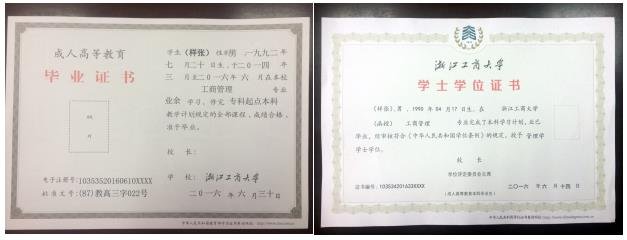 成人高等教育
毕业证书
学生（样张）性别男，一九九二年
七月二十日生，于二〇一四年
三月至二〇一六年六月在本校
工商管理 专业
业余 学习，修完 专科起点本科
教学计划规定的全部课程，成绩合格，
准予毕业。
校 长：
学 校：浙江工商大学
二〇一六年六月三十日
电子注册号：10353520160610XXXX
批准文号：(87)教高三字022号
浙江工商大学
学士学位证书
(样张)，男，1990年04月17日生。在 浙江工商大学
(函授) 工商管理 专业完成了本科学习计划，业已
毕业，经审核符合《中华人民共和国学位条例》的规定，授予 管理学
学士学位。
校 长
学位评定委员会主席
证书编号：103534201633XXXX
二〇一六年六月十四日
(成人高等教育本科毕业生)